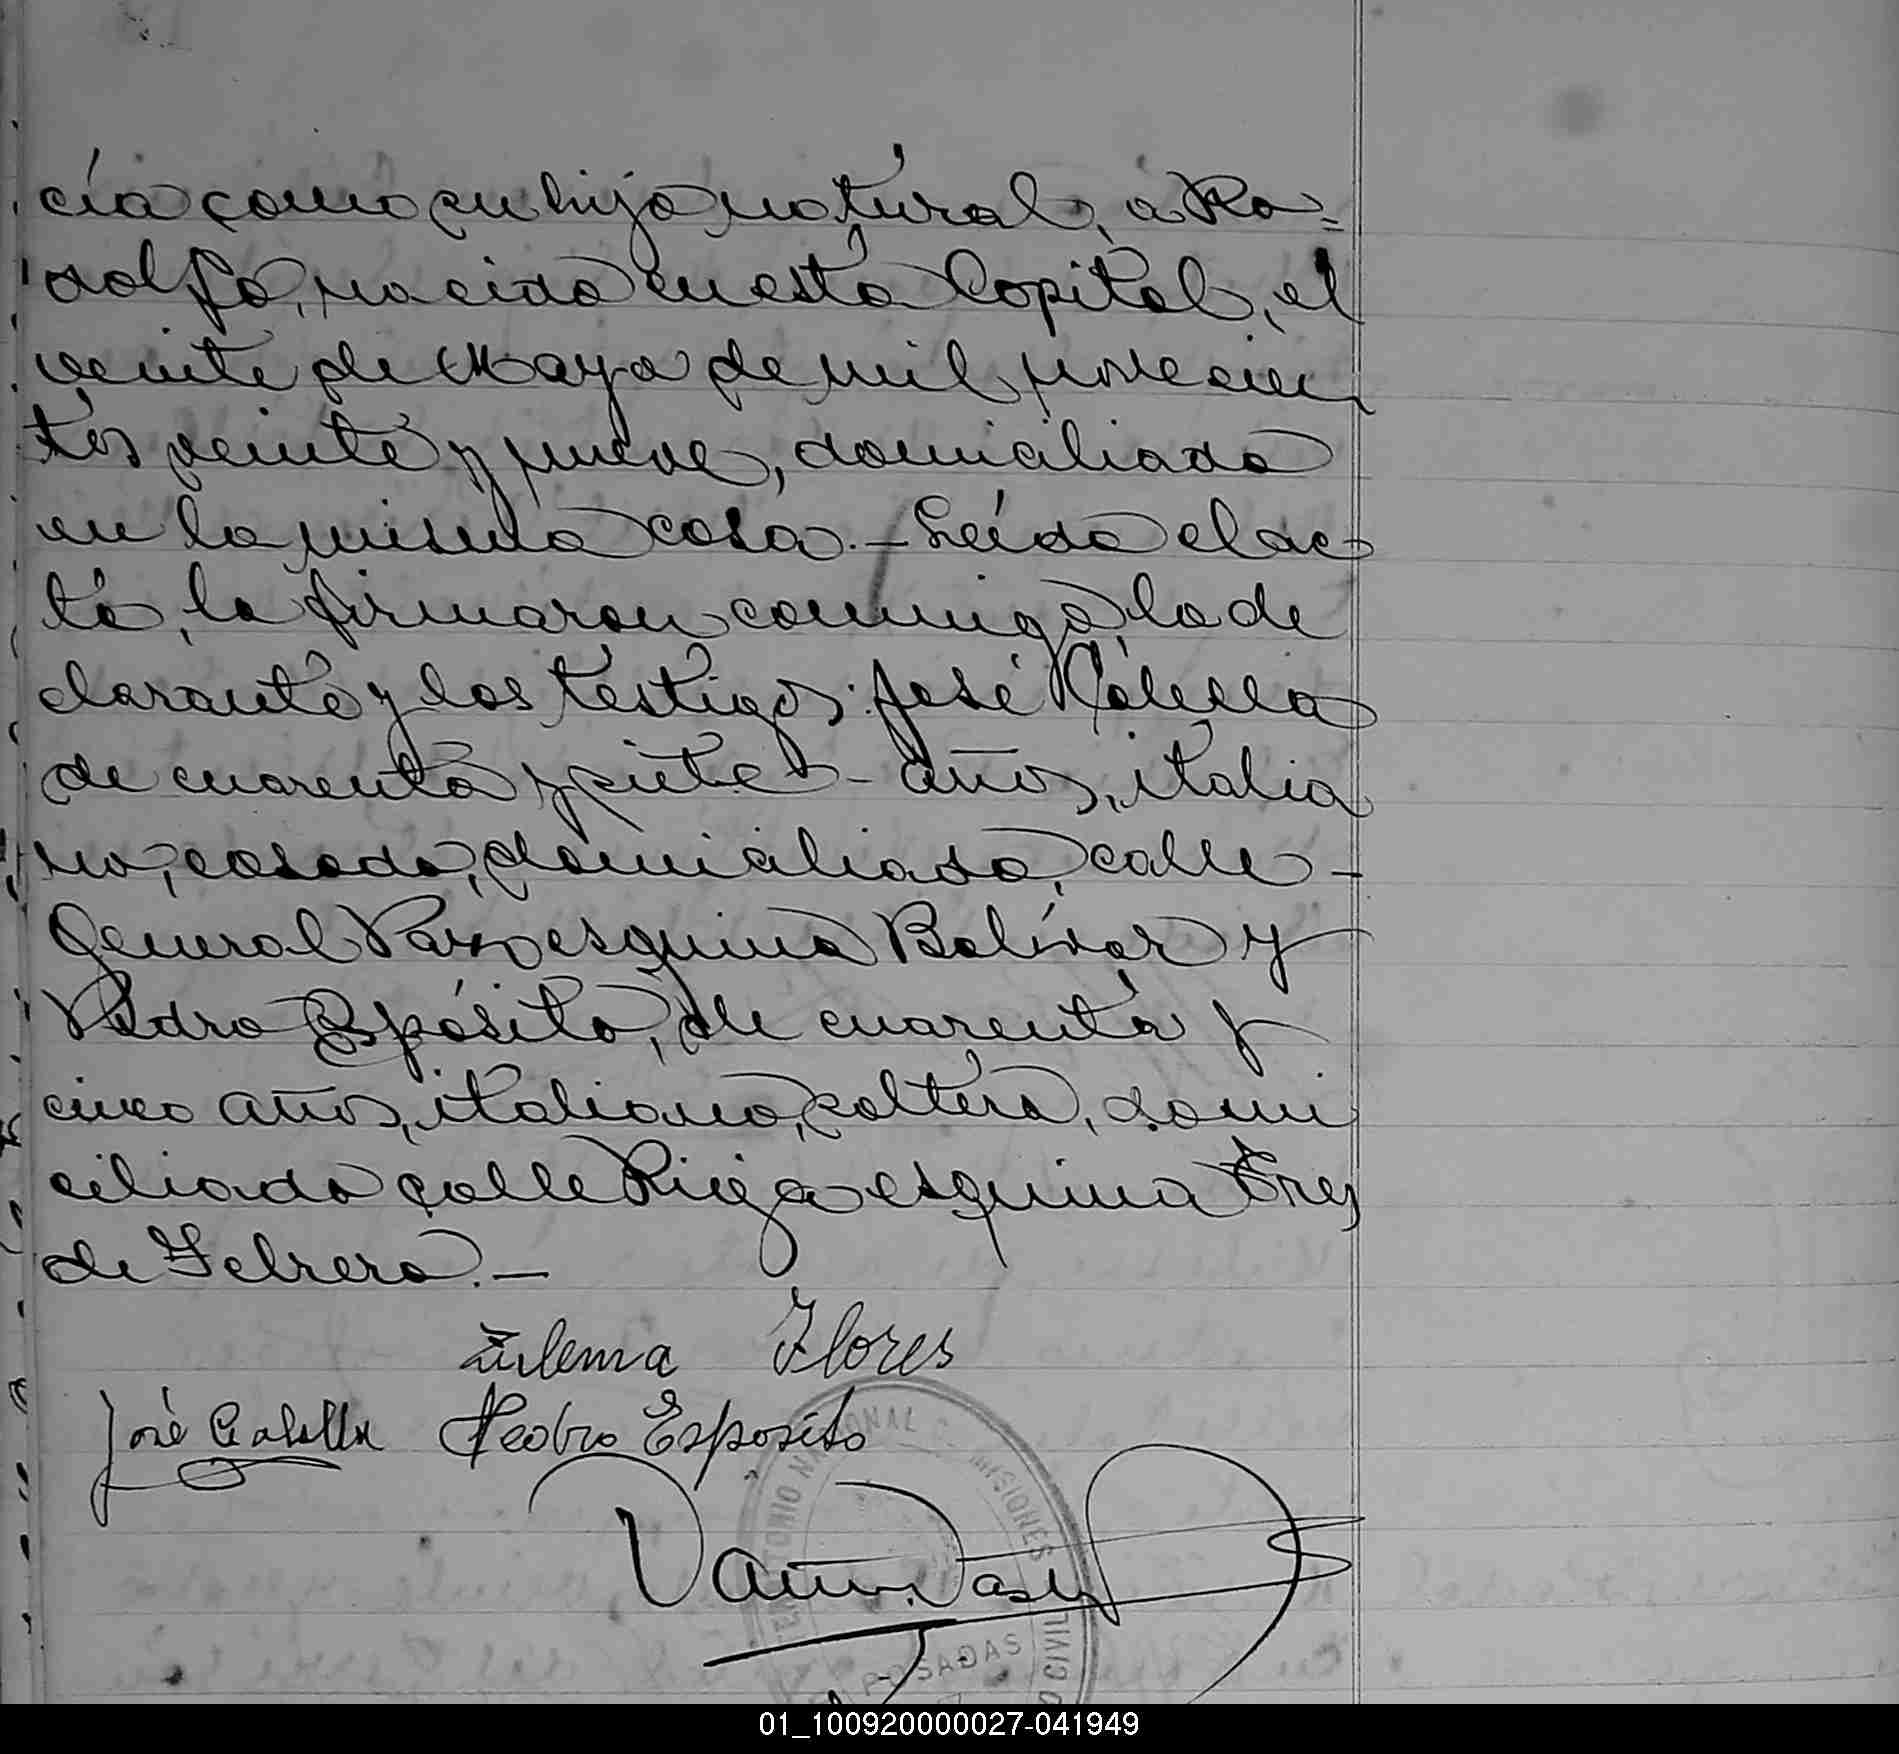 cía como su hijo natural, á Ro=
dolfo, nacido en esta Capital, el
veinte de Mayo de mil novecien
tos veinte y nueve, domiciliado
en la misma casa.- Leída el ac-
ta, la firmaron conmigo, la de
clarante y los testigos: José Calella
de cuarenta y siete - años, italia
no, casado, domiciliado, calle -
General Paz esquina Bolívar y
Pedro Espósito, de cuarenta y
cinco años, italiano, soltero, domi
ciliado calle Rioja esquina Tres
de Febrero.-
Zulema Flores
José Calella Pedro Esposito
TERRITORIO NACIONAL MISIONES
CIVIL
POSADAS
01_100920000027-041949